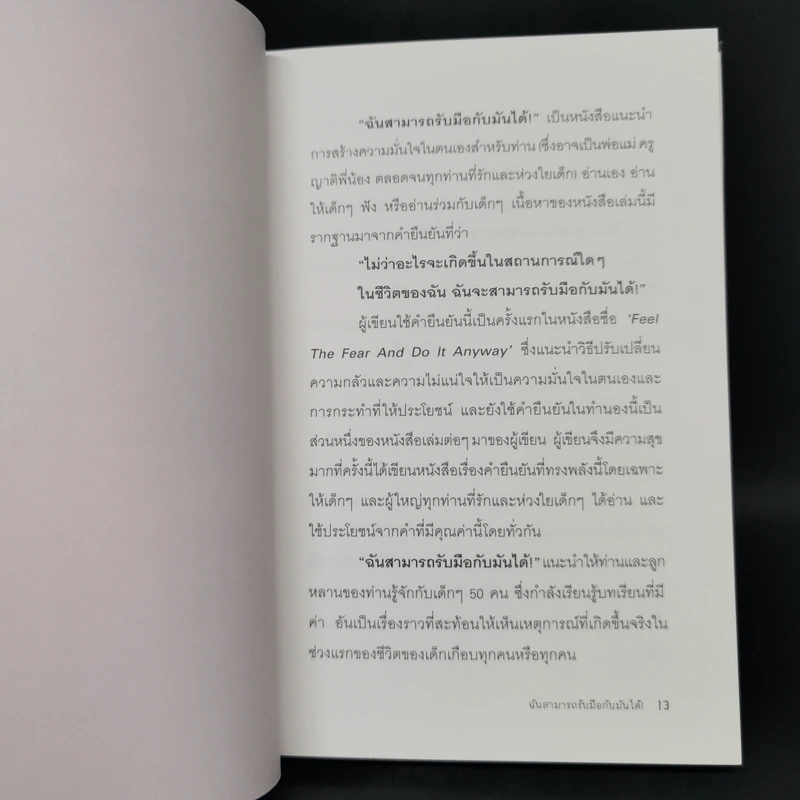 “ฉันสามารถรับมือกับมันได้!” เป็นหนังสือแนะนำ
การสร้างความมั่นใจในตนเองสำหรับท่าน (ซึ่งอาจเป็นพ่อแม่ ครู
ญาติพี่น้อง ตลอดจนทุกท่านที่รักและห่วงใยเด็ก) อ่านเอง อ่าน
ให้เด็กๆ ฟัง หรืออ่านร่วมกับเด็กๆ เนื้อหาของหนังสือเล่มนี้มี
รากฐานมาจากคำยืนยันที่ว่า
“ไม่ว่าอะไรจะเกิดขึ้นในสถานการณ์ใดๆ
ในชีวิตของฉัน ฉันจะสามารถรับมือกับมันได้!”
ผู้เขียนใช้คำยืนยันนี้เป็นครั้งแรกในหนังสือชื่อ ‘Feel
The Fear And Do It Anyway’ ซึ่งแนะนำวิธีปรับเปลี่ยน
ความกลัวและความไม่แน่ใจให้เป็นความมั่นใจในตนเองและ
การกระทำที่ให้ประโยชน์ และยังใช้คำยืนยันในทำนองนี้เป็น
ส่วนหนึ่งของหนังสือเล่มต่อๆ มาของผู้เขียน ผู้เขียนจึงมีความสุข
มากที่ครั้งนี้ได้เขียนหนังสือเรื่องคำยืนยันที่ทรงพลังนี้โดยเฉพาะ
ให้เด็กๆ และผู้ใหญ่ทุกท่านที่รักและห่วงใยเด็กๆ ได้อ่าน และ
ใช้ประโยชน์จากคำที่มีคุณค่านี้โดยทั่วกัน
“ฉันสามารถรับมือกับมันได้!” แนะนำให้ท่านและลูก
หลานของท่านรู้จักกับเด็กๆ 50 คน ซึ่งกำลังเรียนรู้บทเรียนที่มี
ค่า อันเป็นเรื่องราวที่สะท้อนให้เห็นเหตุการณ์ที่เกิดขึ้นจริงใน
ช่วงแรกของชีวิตของเด็กเกือบทุกคนหรือทุกคน
ฉันสามารถรับมือกับมันได้! 13